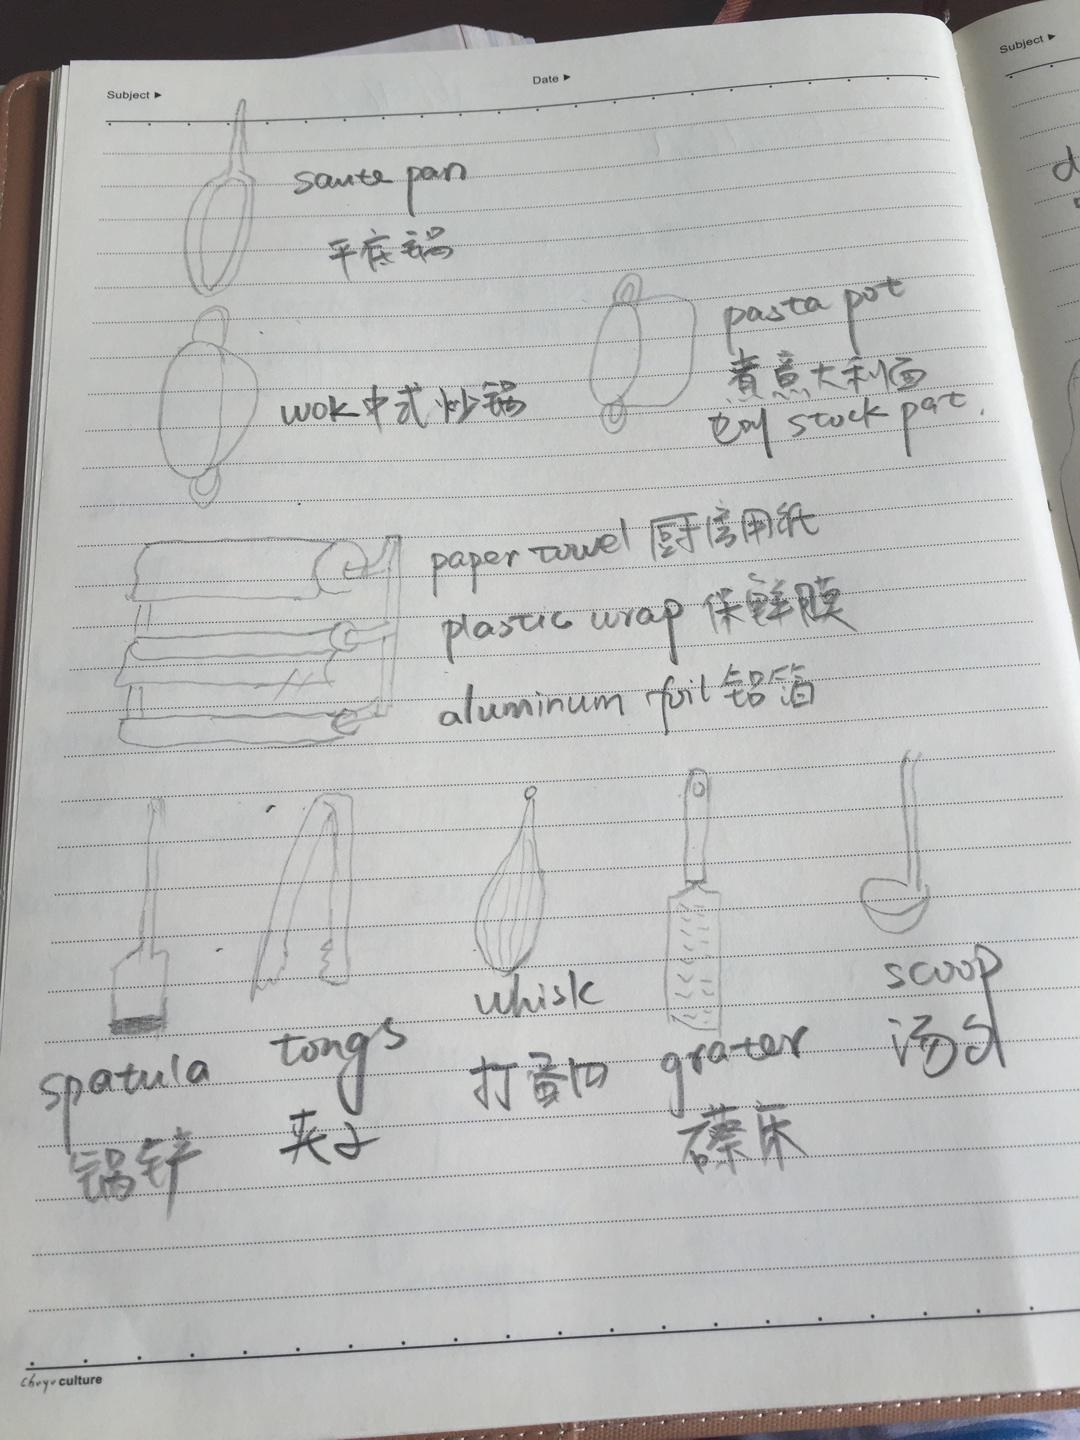 Subject ▶
Date ▶
Subject ▶
saute pan
平底锅
pasta pot
煮意大利面
也叫 stock pat.
wok 中式炒锅
paper towel 厨房用纸
plastic wrap 保鲜膜
aluminum foil 铝箔
spatula
锅铲
tongs
夹子
whisk
打蛋
grater
礤床
scoop
汤勺
culture